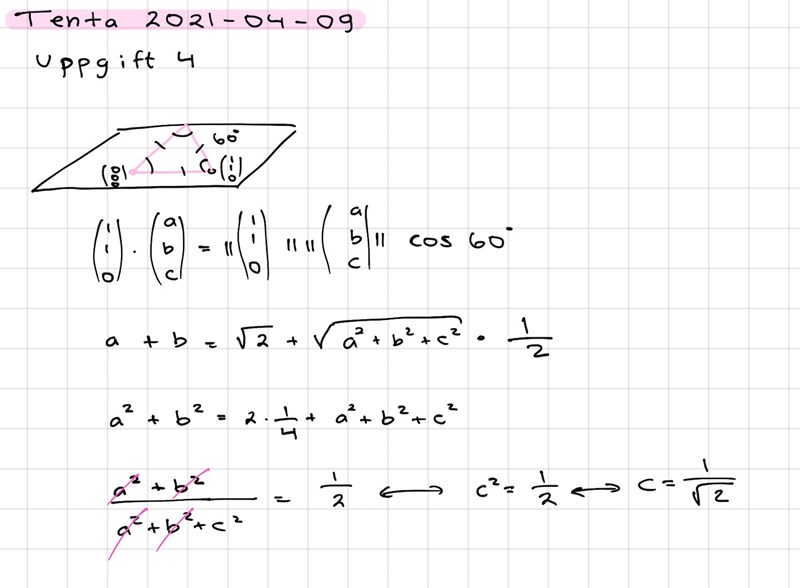 Tenta 2021-04-09
Uppgift 4
60°
(0 0 0) (1 1 0)
(1 1 0) · (a b c) = ||(1 1 0)|| ||(a b c)|| cos 60°
a + b = √2 + √(a² + b² + c²) · 1/2
a² + b² = 2 · 1/4 + a² + b² + c²
(a² + b²)/(a² + b² + c²) = 1/2 ⟷ c² = 1/2 ⟷ c = 1/√2